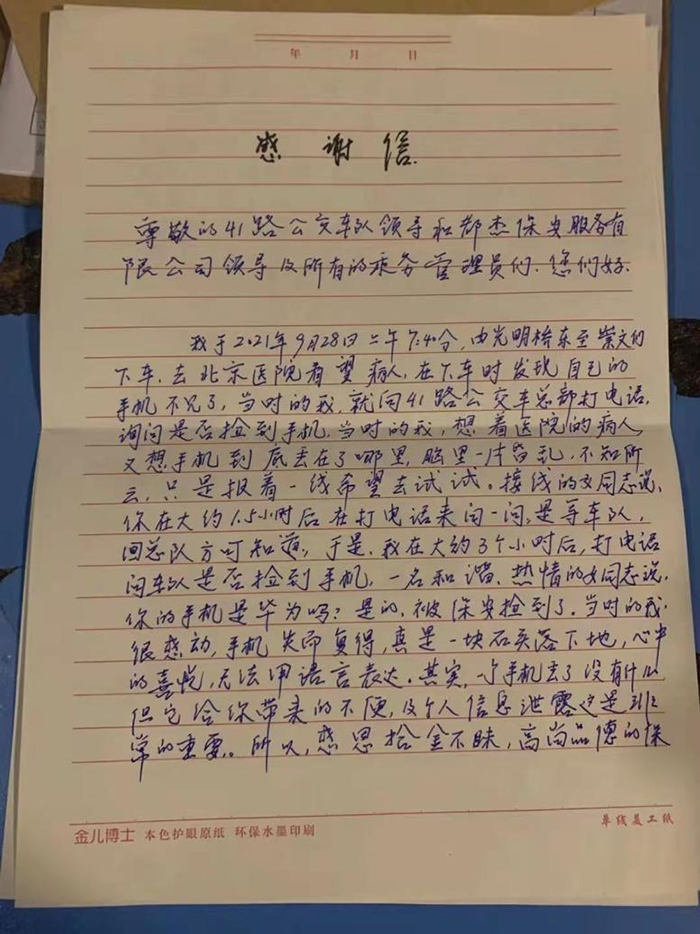 年 月 日
感谢信.
尊敬的41路公交车队领导和都杰保安服务有
限公司领导及所有的乘务管理员们.您们好.
我于2021年9月28日上午7:40分,由光明桥东至崇文门
下车.去北京医院看望病人,在下车时发现自己的
手机不见了,当时的我,就问41路公交车总部打电话,
询问是否捡到手机,当时的我,想着医院的病人
又想手机到底丢在了哪里,脑里一片昏乱,不知所
云,只是报着一线希望去试试。接线的女同志说,
你在大约1.5小时后在打电话来问一问,是等车队,
回总队方可知道,于是,我在大约3个小时后,打电话
问车队是否捡到手机,一名和谐、热情的女同志说,
你的手机是华为吗?是的,被保安捡到了.当时的我,
很感动,手机失而复得,真是一块石头落下地,心中
的喜悦,无法用语言表达。其实,一个手机丢了没有什么
但它给你带来的不便,及个人信息泄露这是非
常的重要。所以,感恩拾金不昧,高尚品德的保
金儿博士 本色护眼原纸 环保水墨印刷
单线美工纸